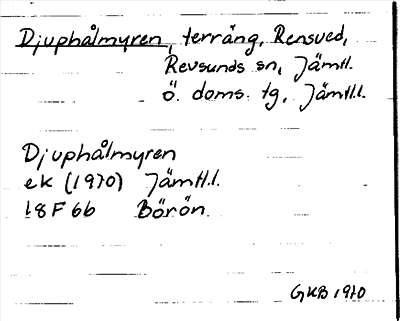 Djuphålmyren, terräng, Rensved,
Revsunds sn, Jämtl.
Ö. doms. tg, Jämtl.l.
Djuphålmyren
ek (1970) Jämtl.l.
18F6b Börön.
GKB 1970